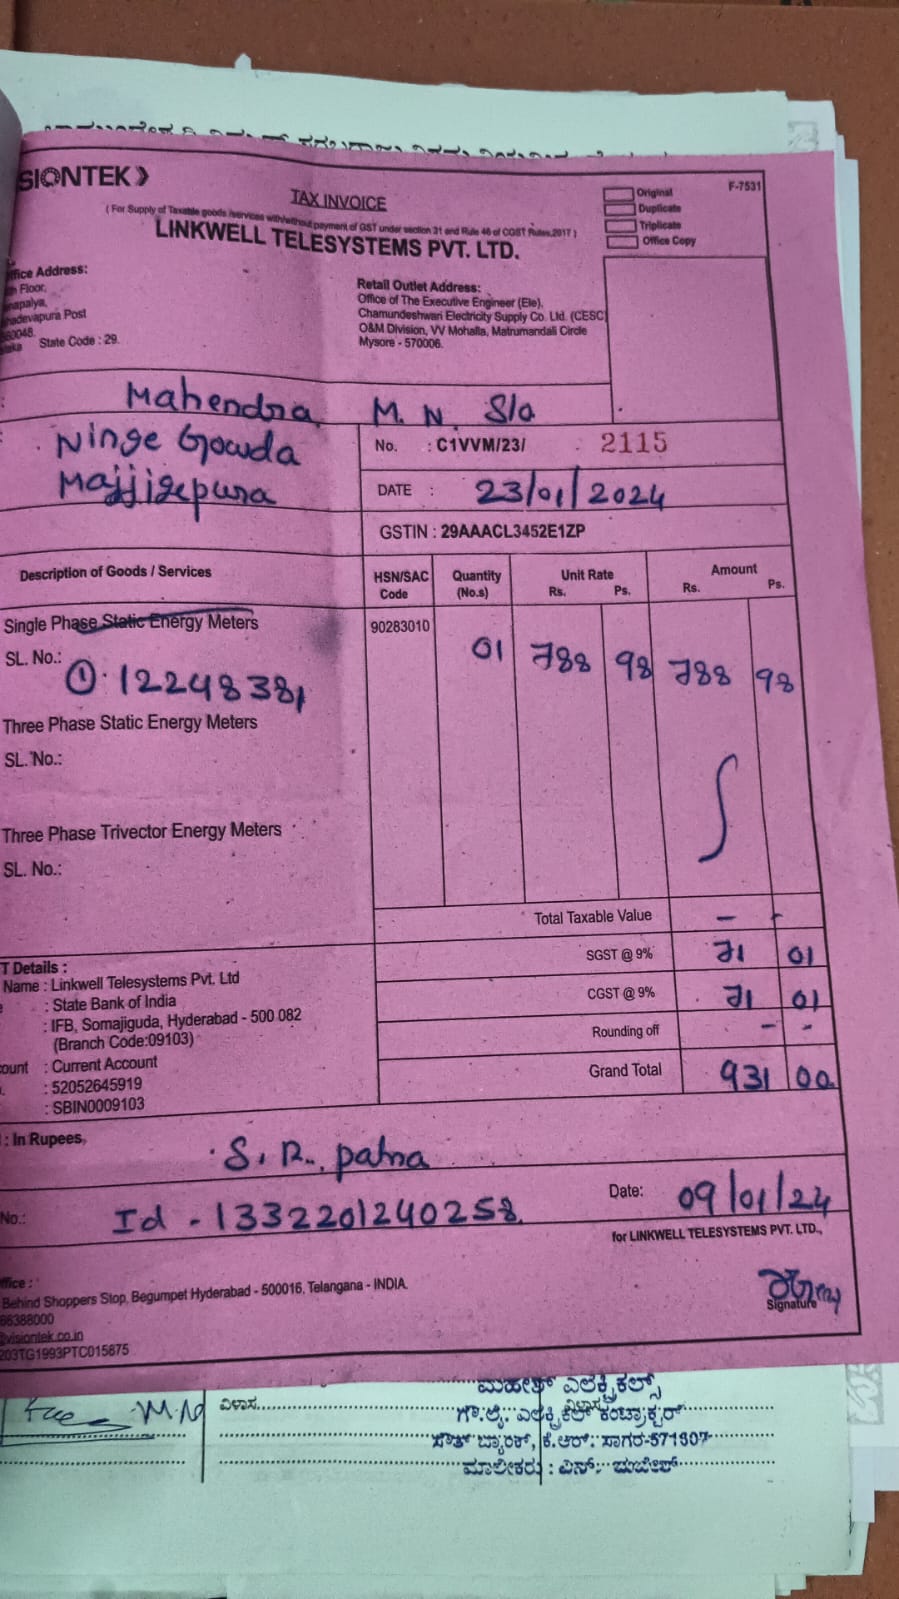 SIONTEK
TAX INVOICE
( For Supply of Taxable goods /services with/without payment of GST under section 31 and Rule 46 of CGST Rules,2017 )
LINKWELL TELESYSTEMS PVT. LTD.
Original
Duplicate
Triplicate
Office Copy
F-7531
ffice Address:
Floor,
napalya,
hadevapura Post
560048.
State Code : 29.
Retail Outlet Address:
Office of The Executive Engineer (Ele),
Chamundeshwari Electricity Supply Co. Ltd. (CESC)
O&M Division, VV Mohalla, Matrumandali Circle
Mysore - 570006.
Mahendra M. N. S/o
Ninge Gowda
Majjigepura
No. : C1VVM/23/ 2115
DATE : 23/01/2024
GSTIN : 29AAACL3452E1ZP
Description of Goods / Services HSN/SAC Code Quantity (No.s) Unit Rate Rs. Ps. Amount Rs. Ps.
Single Phase Static Energy Meters 90283010 01 788 98 788 98
SL. No.: ① 12248381
Three Phase Static Energy Meters
SL. No.:
Three Phase Trivector Energy Meters
SL. No.:
Total Taxable Value - -
SGST @ 9% 71 01
CGST @ 9% 71 01
Rounding off - -
Grand Total 931 00
T Details :
Name : Linkwell Telesystems Pvt. Ltd
: State Bank of India
: IFB, Somajiguda, Hyderabad - 500 082
(Branch Code:09103)
ount : Current Account
: 52052645919
: SBIN0009103
: In Rupees,
S. R. patna
No.: Id - 1332201240258
Date: 09/01/24
for LINKWELL TELESYSTEMS PVT. LTD.,
Signature
ffice :
Behind Shoppers Stop, Begumpet Hyderabad - 500016, Telangana - INDIA.
66388000
visiontek.co.in
203TG1993PTC015875
M.N
ವಿಳಾಸ
ಮಹೇಶ್ ಎಲೆಕ್ಟ್ರಿಕಲ್ಸ್
ಎಲೆಕ್ಟ್ರಿಕಲ್ ಕಂಟ್ರಾಕ್ಟರ್
ಬ್ಯಾಂಕ್, ಕೆ.ಆರ್. ಸಾಗರ-571607
ಮಾಲೀಕರು : ಎನ್.